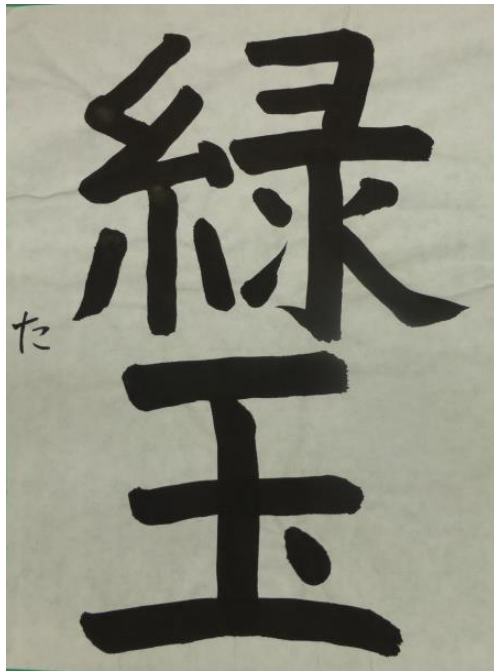 緑玉
た